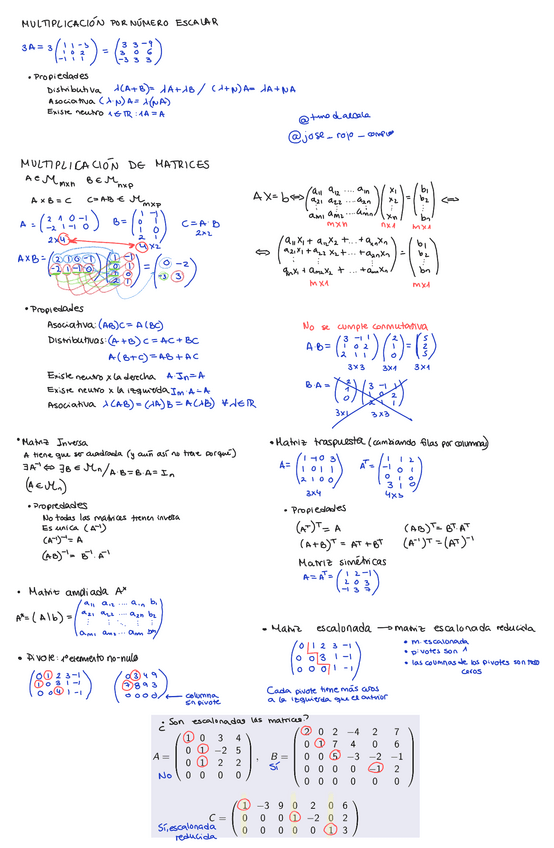 MULTIPLICACIÓN POR NÚMERO ESCALAR
3A = 3 ( 1 1 -3 / 1 0 2 / -1 1 1 ) = ( 3 3 -9 / 3 0 6 / -3 3 3 )
• Propiedades
Distributiva λ(A+B) = λA + λB / (λ+N)A = λA + NA
Asociativa (λ·N)A = λ(NA)
Existe neutro 1 ∈ ℝ : 1A = A
@jose_rojo_
MULTIPLICACIÓN DE MATRICES
A ∈ M mxn B ∈ M nxp
A × B = C C = A·B ∈ M mxp
A = ( 2 1 0 -1 / -2 1 -1 0 ) B = ( 1 -1 / 1 0 / 0 1 / 2 1 ) C = A·B
2×4 4×2 2×2
A×B = ( 2 1 0 -1 / -2 1 -1 0 ) ( 1 -1 / 1 0 / 0 1 / 2 1 ) = ( 0 -2 / -3 3 )
AX = b ⟺ ( a11 a12 ... a1n / a21 a22 ... a2n / am1 am2 ... amn ) ( x1 / x2 / xn ) = ( b1 / b2 / bn ) ⟺
m×n n×1 m×1
⟺ ( a11x1 + a12x2 + ... + a1nxn / a21x1 + a22x2 + ... + a2nxn / am1x1 + am2x2 + ... + amnxn ) = ( b1 / b2 / bn )
m×1 m×1
• Propiedades
Asociativa: (AB)C = A(BC)
Distributivas: (A+B)C = AC + BC
A(B+C) = AB + AC
Existe neutro x la derecha A·In = A
Existe neutro x la izquierda Im·A = A
Asociativa λ(AB) = (λA)B = A(λB) ∀ λ ∈ ℝ
No se cumple conmutativa
A·B = ( 3 -1 1 / 1 0 2 / 2 1 1 ) ( 2 / 1 / 0 ) = ( 5 / 2 / 5 )
3×3 3×1 3×1
B·A = ( 2 / 1 / 0 ) ( 3 -1 1 / 1 0 2 / 2 1 1 )
3×1 3×3
• Matriz Inversa
A tiene que ser cuadrada (y aún así no tiene porqué)
∃A⁻¹ ⟺ ∃B ∈ Mn / A·B = B·A = In
(A ∈ Mn)
• Propiedades
No todas las matrices tienen inversa
Es única (A⁻¹)
(A⁻¹)⁻¹ = A
(AB)⁻¹ = B⁻¹·A⁻¹
• Matriz traspuesta (cambiando filas por columnas)
A = ( 1 -1 0 3 / 1 0 1 1 / 2 1 0 0 ) Aᵀ = ( 1 1 2 / -1 0 1 / 0 1 0 / 3 1 0 )
3×4 4×3
• Propiedades
(Aᵀ)ᵀ = A (AB)ᵀ = Bᵀ·Aᵀ
(A+B)ᵀ = Aᵀ + Bᵀ (A⁻¹)ᵀ = (Aᵀ)⁻¹
Matriz simétricas
A = Aᵀ = ( 1 2 -1 / 2 0 3 / -1 3 7 )
• Matriz ampliada A*
A* = (A|b) = ( a11 a12 ... a1n b1 / a21 a22 ... a2n b2 / am1 am2 ... amn bn )
• Matriz escalonada → matriz escalonada reducida
( 0 1 2 3 -1 / 0 0 3 1 -1 / 0 0 0 1 -1 )
• m. escalonada
• pivotes son 1
• las columnas de los pivotes son todo ceros
Cada pivote tiene más ceros
a la izquierda que el anterior
• Pivote: 1º elemento no-nulo
( 0 1 2 3 -1 / 1 0 3 1 -1 / 0 0 4 1 -1 ) ( 0 3 4 9 / 7 8 9 3 / 0 0 0 0 )
columna
sin pivote
• ¿Son escalonadas las matrices?
A = ( 1 0 3 4 / 0 1 -2 5 / 0 1 2 2 / 0 0 0 0 ) , B = ( 2 0 2 -4 2 7 / 0 1 7 4 0 6 / 0 0 5 -3 -2 -1 / 0 0 0 0 -1 2 / 0 0 0 0 0 0 )
No Sí
C = ( 1 -3 9 0 2 0 6 / 0 0 0 1 -2 0 2 / 0 0 0 0 0 1 3 )
Sí, escalonada
reducida